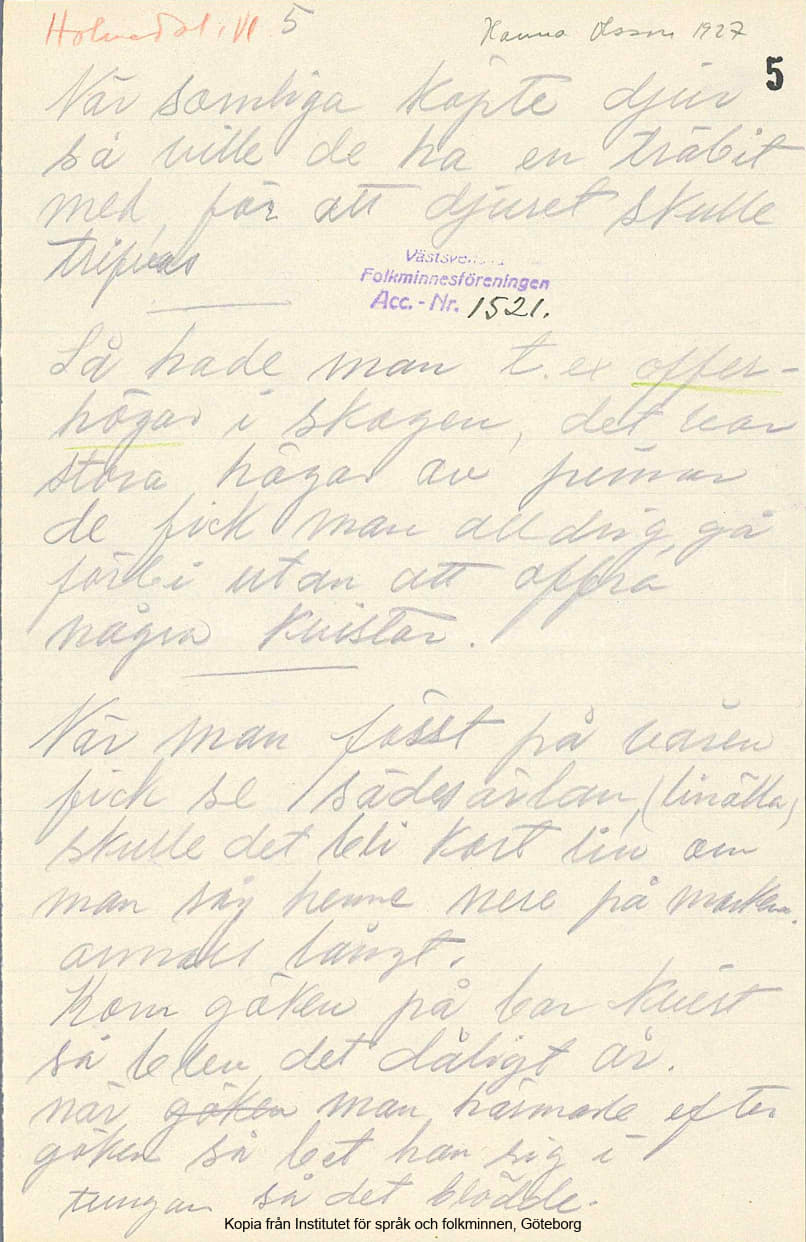 Holmedal, Vl. 5
Hanna Olsson 1927
5
När somliga köpte djur
så ville de ha en träbit
med, för att djuret skulle
trifvas
Västsvenska
Folkminnesföreningen
Acc. - Nr. 1521.
Så hade man t.ex offer-
högar i skogen, det var
stora högar av pinnar
de fick man alldrig gå
förbi utan att offra
några kvistar.
När man först på våren
fick se sädesärlan, (linärla)
skulle det bli kort lin om
man såg henne nere på marken.
annars långt.
Kom göken på bar kvist
så blev det dåligt år.
när göken man härmade efter
göken så bet han sig i
tungan så det blödde.
Kopia från Institutet för språk och folkminnen, Göteborg